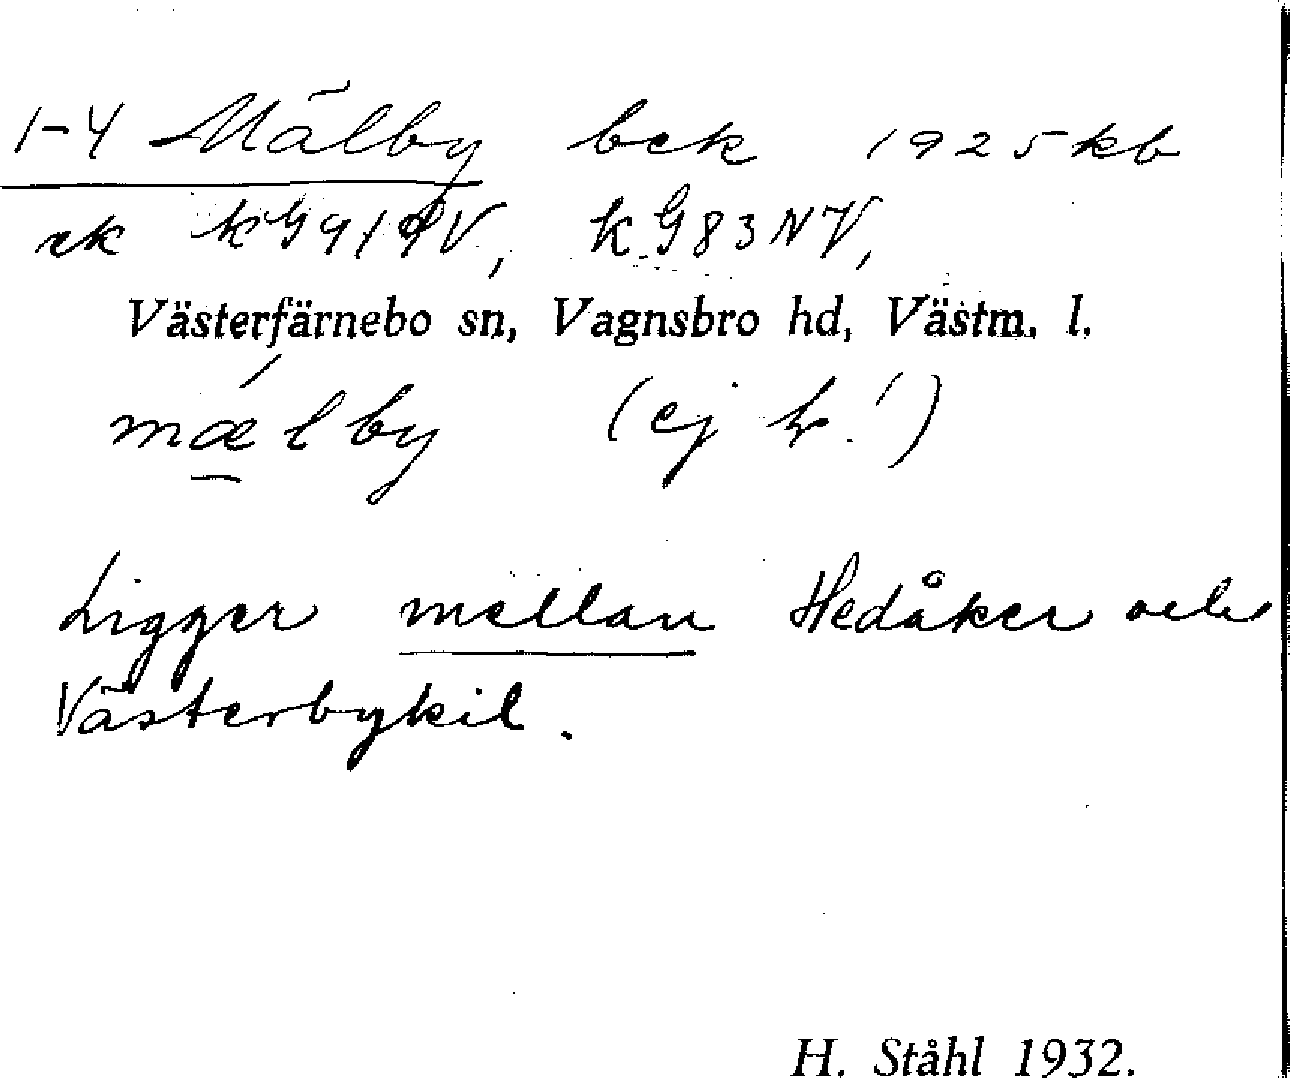 1-4 Mälby bek 1925 kb
ek KG91 V, KG83NV,
Västerfärnebo sn, Vagnsbro hd, Västm. l.
mǽlby (ej hr.!)
Ligger mellan Hedåker och
Västerbykil.
H. Ståhl 1932.